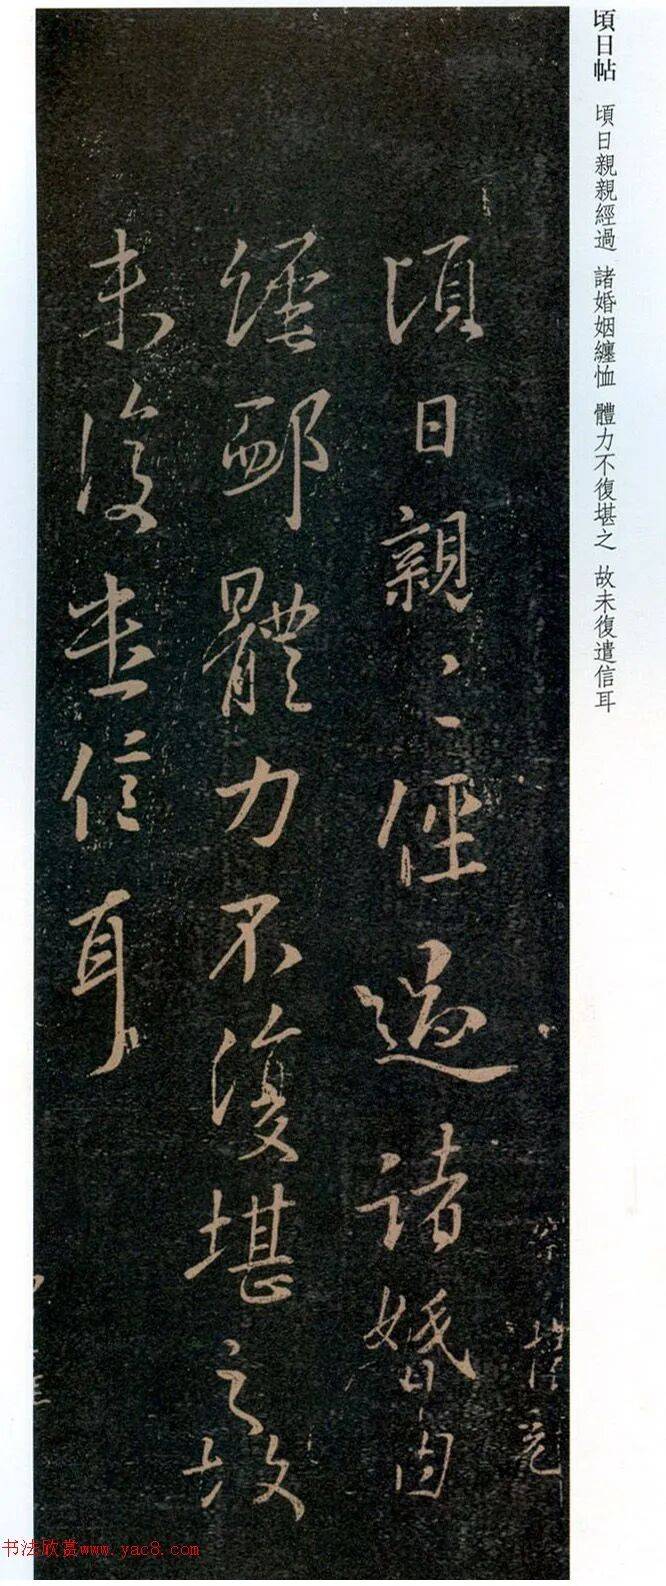 頃日帖 頃日親親經過 諸婚姻纏恤 體力不復堪之 故未復遣信耳
頃日親〻經過諸婚因
經邺體力不復堪之故
未復遣信耳
书法欣赏www.yac8.com